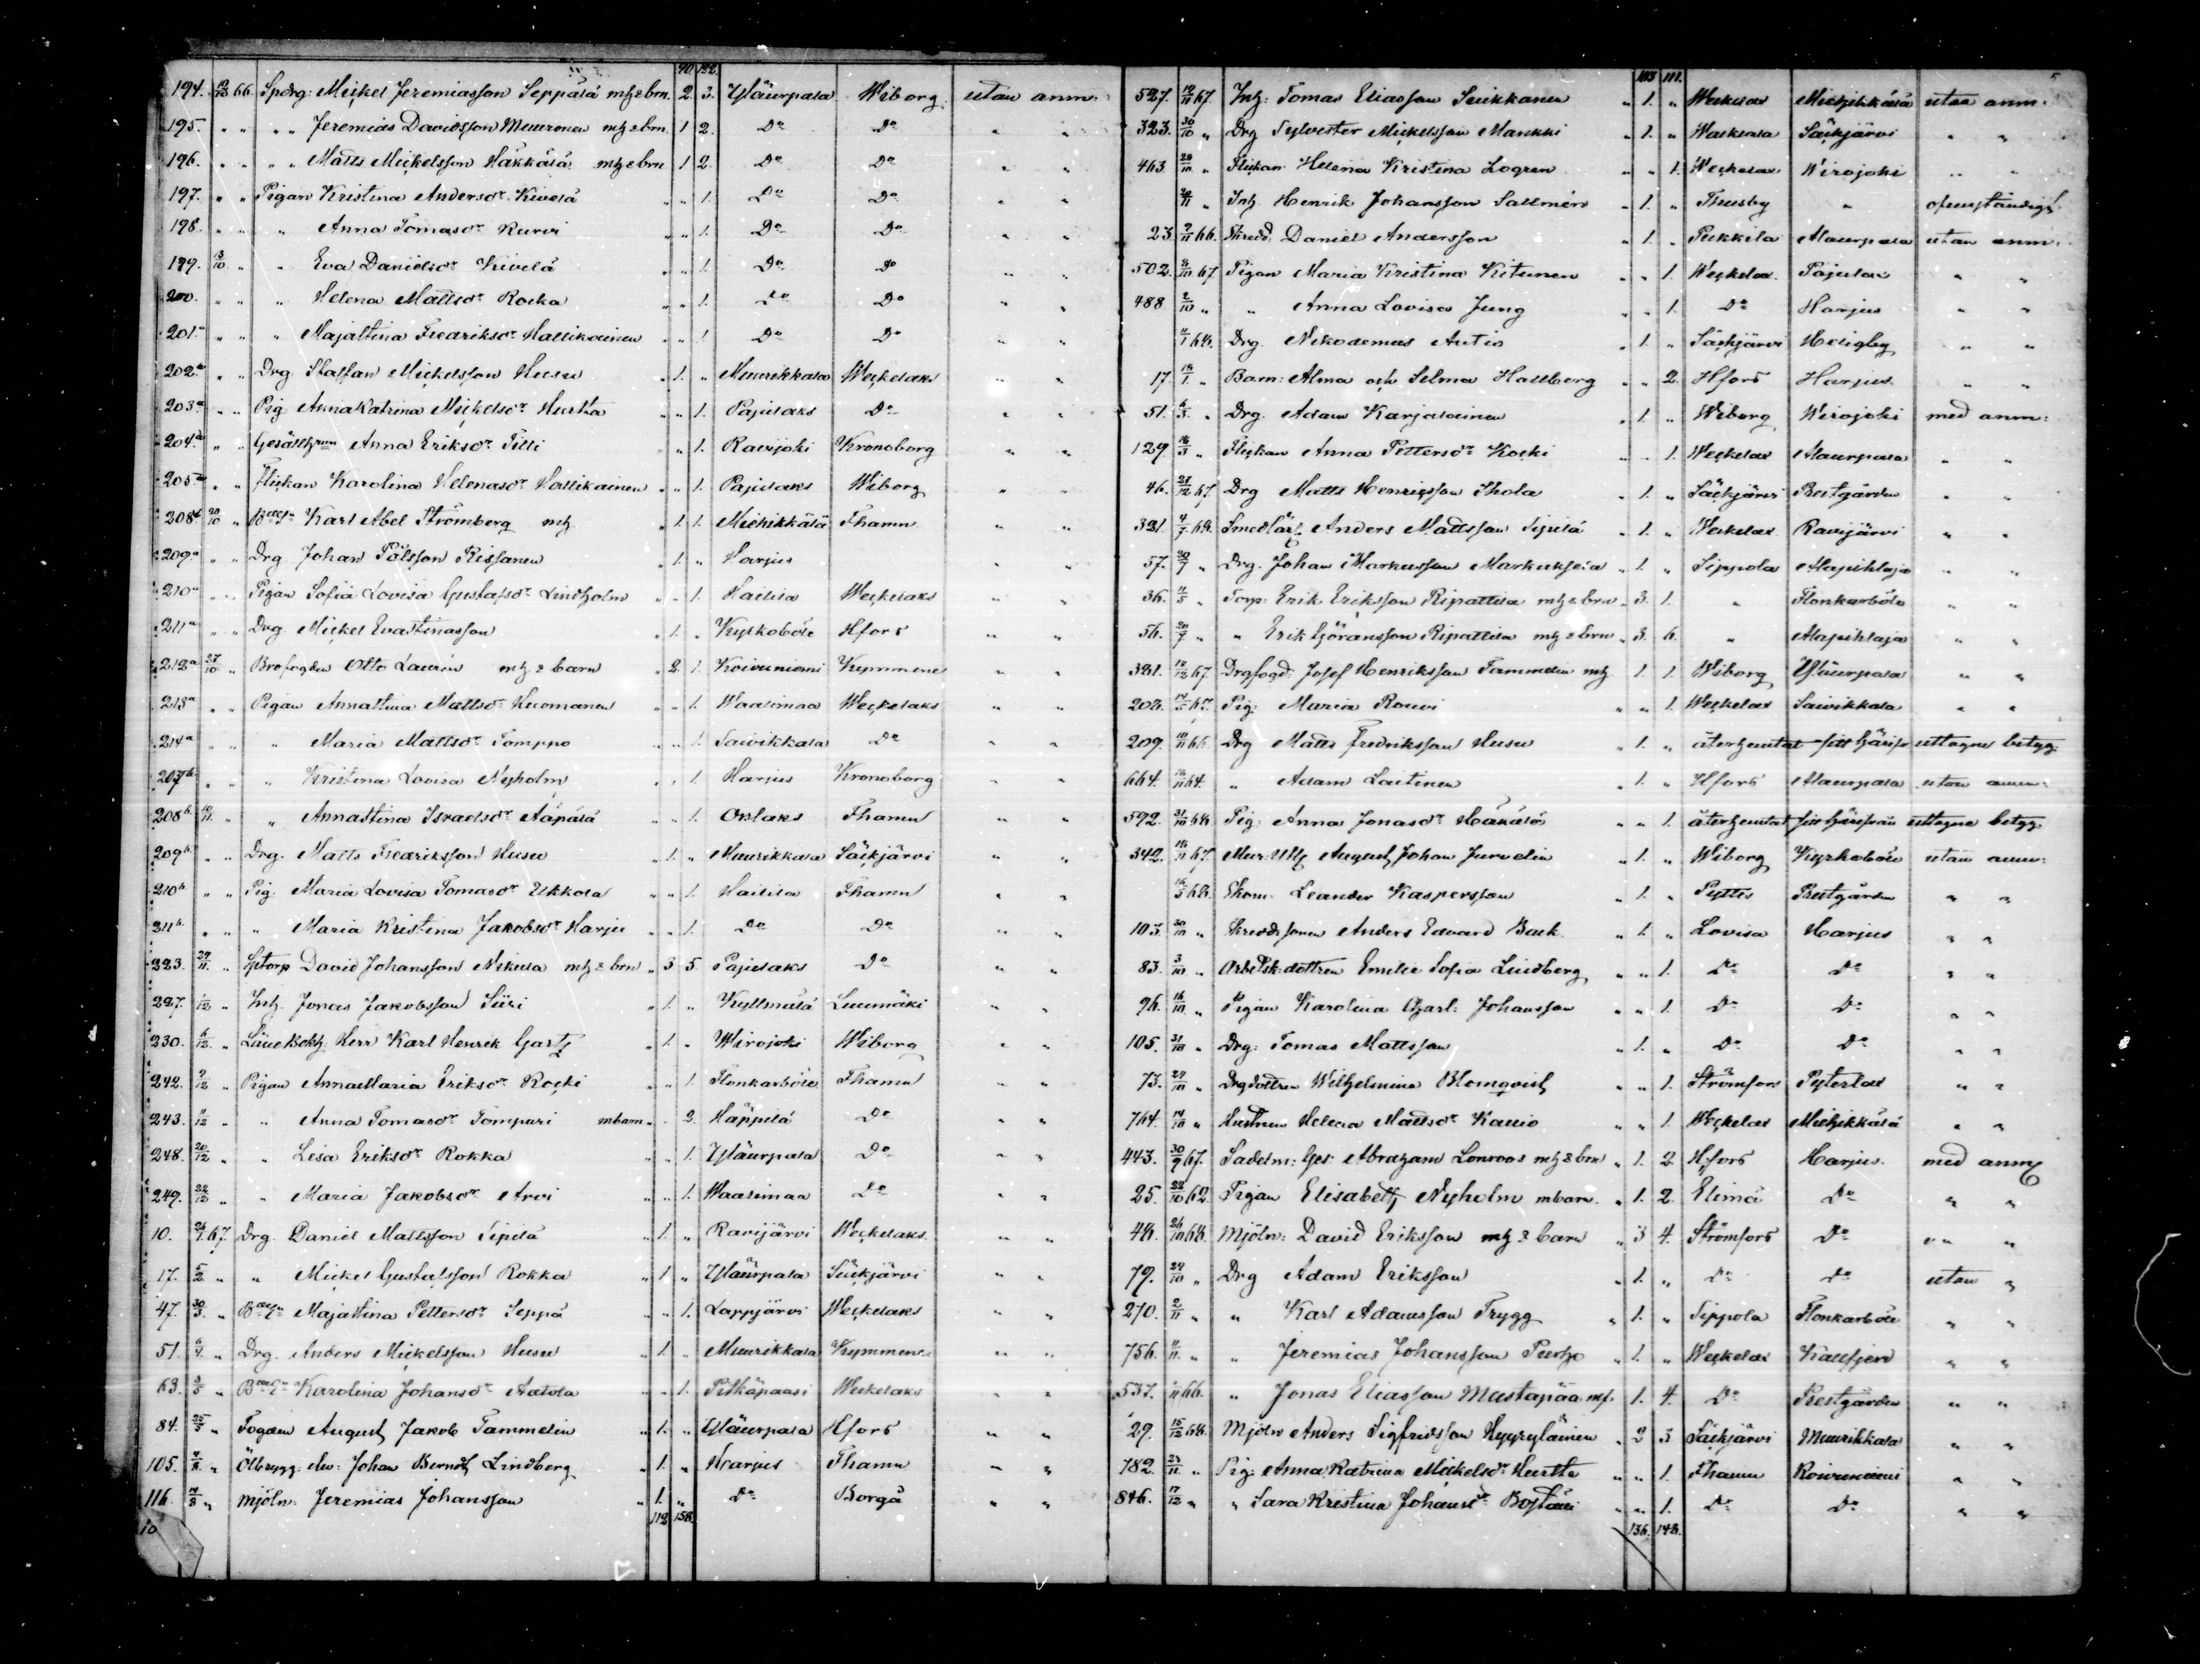 90. 122.
194. 12/10 66. Spdrg: Mickel Jeremiasson Seppälä mh & brn. 2. 3. Yläurpala Wiborg utan anm:
195. " " " " Jeremias Davidsson Muuronen mh & brn. 1 2. Do Do " "
196. " " " " Matts Mickelsson Häkkälä mh & brn 1 2. Do Do " "
197. " " Pigan Kristina Andersdr Kivelä " " 1. Do Do " "
198. " " " Anna Tomasdr Kurvi " " 1. Do Do " "
199. 13/10 " " Eva Danielsdr Kivelä " " 1. Do Do " "
200. " " " Helena Mattsdr Rocka " " 1. Do Do " "
201.a " " " Majastina Fredriksdr Hallikainen " " 1. Do Do " "
202.a " " Drg Staffan Mickelsson Husu " 1. " Muurikkala Weckelaks " "
203.a " " Pig Anna Katrina Mickelsdr Hurtta " " 1. Pajulaks Do " "
204.a " " Anna Eriksdr Tilli " " 1. Ravijoki Kronoborg " "
205.a " " Flickan Karolina Helenasdr Hallikainen " " 1. Pajulaks Wiborg " "
208b 20/10 " Karl Abel Strömberg mh " 1. 1. Miehikkälä Fhamn " "
209.a " " Drg Johan Pålsson Rissanen " 1. " Harjus " "
210a " " Pigan Sofia Lovisa Gustafsdr Lindholm " " 1. Hailila Weckelaks " "
211a " " Drg Mickel Evastinasson " 1. " Kyrkoböle Hfors " "
212a 27/10 " Brofogden Otto Laurin mh & barn " 2. 1. Koivuniemi Kymmene " "
213a " " Pigan Annastina Mattsdr Huomanen " " 1. Waalimaa Weckelaks " "
214a " " " Maria Mattsdr Tomppo " " 1. Saivikkala Do " "
207b " " " Kristina Lovisa Nyholm " " 1. Harjus Kronoborg " "
208b 10/11 " " Annastina Israelsdr Aäpälä " " 1. Orslaks Fhamn " "
209b " " Drg. Matts Fredriksson Husu " 1. " Muurikkala Säckjärvi " "
210b " " Pig Maria Lovisa Tomasdr Ukkola " " 1. Hailila Fhamn " "
211b " " " Maria Kristina Jakobsdr Harju " " 1. Do Do " "
223. 29/11 " Sptorp David Johansson Nikula mh & brn " 3 5. Pajulaks Do " "
227. 1/12 " Inh. Jonas Jakobsson Siiri " 1. " Kyllmälä Luumäki " "
230. 6/12 " Herr Karl Henrik Gartz " 1. " Wirojoki Wiborg " "
242. 9/12 " Pigan Anna Maria Eriksdr Rocki " " 1. Flonkarböle Fhamn " "
243. 11/12 " " Anna Tomasdr Tompuri mbarn " " 2. Häppilä Do " "
248. 20/12 " " Lisa Eriksdr Rokka " " 1. Yläurpala Do " "
249. 22/12 " " Maria Jakobsdr Arvi " " 1. Waalimaa Do " "
10. 26/1 67. Drg. Daniel Mattsson Sipilä " 1. " Ravijärvi Weckelaks " "
17. 5/2 " " Mickel Gustafsson Rokka " 1 " Yläurpala Säckjärvi " "
47. 30/3 " Majastina Pettersdr Seppä " " 1. Lappjärvi Weckelaks " "
51. 6/4 " Drg. Anders Mickelsson Husu " 1. " Muurikkala Kymmene " "
63. 3/5 " Karolina Johansdr Aatola " " 1. Pitkäpaasi Weckelaks " "
84. 25/5 " Fogden August Jakob Tammelin " 1. " Yläurpala Hfors " "
105. 4/8 " Ölbrygg. elev: Johan Berndt Lindberg " 1. " Harjus Fhamn " "
116. 14/8 " Mjöln: Jeremias Johansson " 1. " Do Borgå " "
112 156.
10
103 111. 5
527. 12/11 67. Inh: Tomas Eliasson Suikkanen " 1. " Weckelax Miehikkälä utan anm:
323. 30/10 " Drg Sylvester Mickelsson Mankki " 1. " Weckelax Säckjärvi " "
463. 28/10 " Flickan Helena Kristina Logren " " 1. Weckelax Wirojoki " "
" Inh Henrik Johansson Sallmén " 1. " Thusby " ofullständigt
23. 9/11 66. Skredd. Daniel Andersson " 1. " Pukkila Alaurpala utan anm:
502. 8/10 67. Pigan Maria Kristina Kitunen " " 1. Weckelax Pajulax " "
488 2/10 " " Anna Lovisa Jung " " 1. Do Harjus " "
11/1 68. Drg. Nikodemus Antio " 1. " Säckjärvi Heligby " "
17. 14/1. " Barn: Alma och Selma Hallberg " " 2. Hfors Harjus " "
51. 6/3. " Drg. Adam Karjalainen " 1. " Wiborg Wirojoki med anm:
129. 16/3 " Flickan Anna Pettersdr Kocki " " 1. Weckelax Alaurpala " "
46. 21/12 67. Drg Matts Henriksson Ihola " 1. " Säckjärvi Prestgården " "
321. 4/7 68. Smedlärl Anders Mattsson Sipilä " 1. " Weckelax Ravijärvi " "
57. 20/7 " Drg. Johan Markusson Markuksela " 1. " Sippola Alapihlaja " "
36. 11/5 " Torp: Erik Eriksson Ripattila mh & brn " 3. 1. " Flonkarböle " "
56. 20/7 " " Erik Göransson Ripattila mh & brn " 3. 6. " Alapihlaja " "
321. 12/12 67. Drgfogd: Josef Henriksson Tammelin mh 1. 1. Wiborg Yläurpala " "
208. 67. Pig: Maria Rouvi " " 1. Weckelax Saivikkala " "
209. 10/11 66. Drg Matts Fredriksson Husu " 1. " återhemtat sitt härifr uttagne betyg.
664. 64. " Adam Laitinen " 1. " Hfors Alaurpala utan anm:
592. 31/10 68. Pig: Anna Jonasdr Häkälä " " 1. återhemtat sitt härifrån uttagne betyg.
342. 67. Mur: August Johan Jurvelin " 1. " Wiborg Kyrkoböle utan anm:
16/5 68. Skom: Leander Kaspersson " 1. " Pyttis Prestgården " "
103. 30/10 " Skreddsonen Anders Edvard Back " 1. " Lovisa Harjus " "
83. 3/10 " Arbetsk:dottren Emelie Sofia Lindberg " " 1. Do Do " "
96. 16/10 " Pigan Karolina Charl: Johansson " " 1. Do Do " "
105. 31/10 " Drg: Tomas Mattsson " 1. " Do Do " "
73. 24/10 " Drgdottren Wilhelmina Blomqvist " " 1. Strömfors Pyterlax " "
764. 14/10 " Hustrun Helena Mattsdr Kallio " " 1 Weckelax Miehikkälä " "
443. 30/9 67. Sadelm: Ges: Abraham Lonroos mh & brn " 1. 2. Hfors Harjus. med anm
25. 22/10 62. Pigan Elisabeth Nyholm mbarn " 1. 2. Elimä Do " "
48. 26/10 68. Mjöln: David Eriksson mh & barn " 3 4. Strömfors Do " "
79. 29/10 " Drg Adam Eriksson " 1. " Do Do utan "
270. 2/11 " " Karl Adamsson Trygg " 1. " Sippola Flonkarböle " "
756. 11/11. " " Jeremias Johansson Purho " 1. " Weckelax Kallfjerd " "
537. 66. " Jonas Eliasson Mustapää mf. 1. 4. Do Prestgården " "
29. 15/12 68. Mjöln Anders Sigfridsson Hyyryläinen " 2 3 Säckjärvi Muurikkala " "
782. 23/11 " Pig: Anna Katrina Mickelsdr Hurtta " " 1. Fhamn Koivuniemi " "
846. 17/12 " " Sara Kristina Johansdr " " 1. Do Do " "
136. 148.